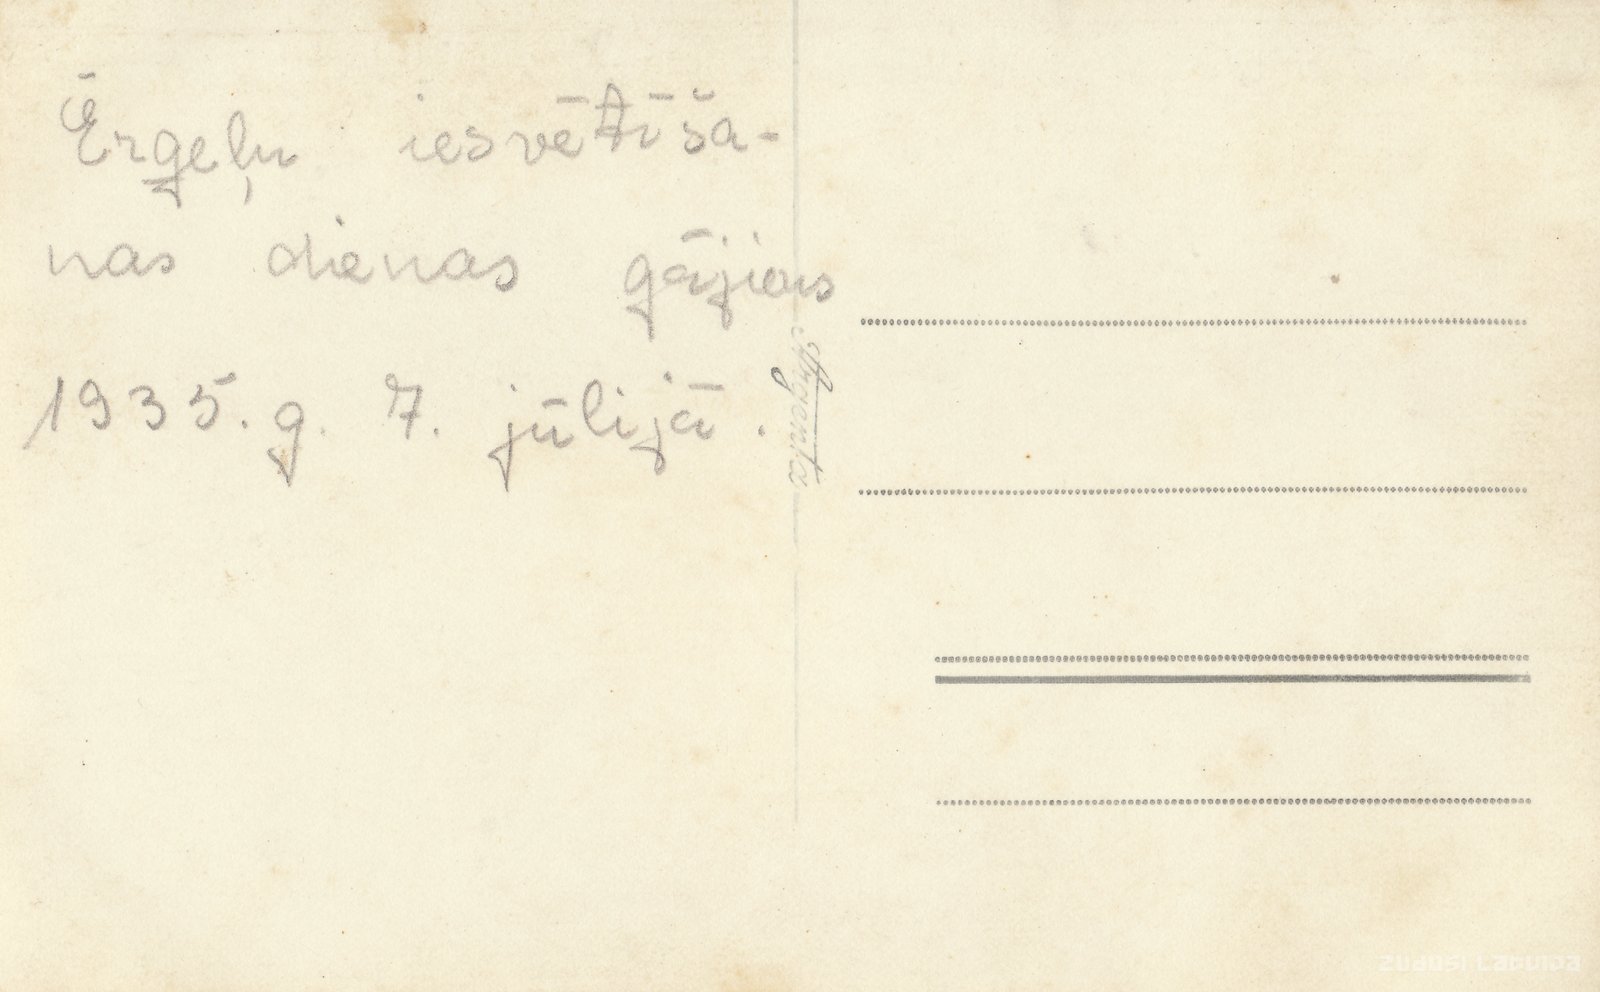 Ērģeļu iesvētīša-
nas dienas gājiens
1935. g. 7. jūlijā.
Argenta
ZUDUSI LATVIJA